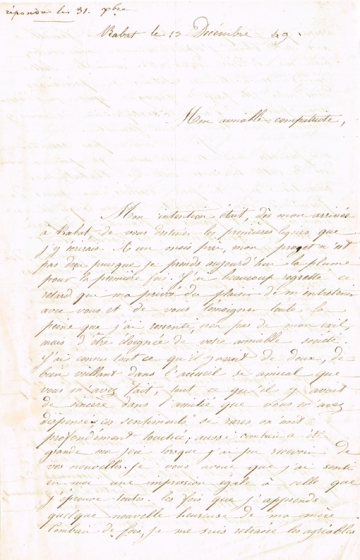 répondu le 31. xbre
Rabat le 12 Décembre 49.
Mon aimable compatriote,
Mon intention était, dès mon arrivée
à Rabat, de vous destiner les premières lignes que
j'y écrirais. A un mois près, mon projet n'est
pas déçu puisque je prends aujourd'hui la plume
pour la première fois. J'ai beaucoup regretté ce
retard qui m'a privé du plaisir de m'entretenir
avec vous et de vous témoigner toute la
peine que j'ai ressentie, non pas de mon exil,
mais d'être éloignée de votre aimable société.
J'ai connu tout ce qu'il y avait de doux, de
bienveillant dans l'accueil si amical que
vous m'avez fait, tout ce qu'il y avait
de sincère dans l'amitié que vous m'avez
dispensée; ces sentiments si rares m'ont
profondément touchée; aussi combien a été
grande ma joie lorsque j'ai pu recevoir de
vos nouvelles. Je vous avoue que j'ai senti
en moi une impression égale à celle que
j'éprouve toutes les fois que j'apprends
quelque nouvelle heureuse de ma mère.
Combien de fois, je me suis retracée les agréables